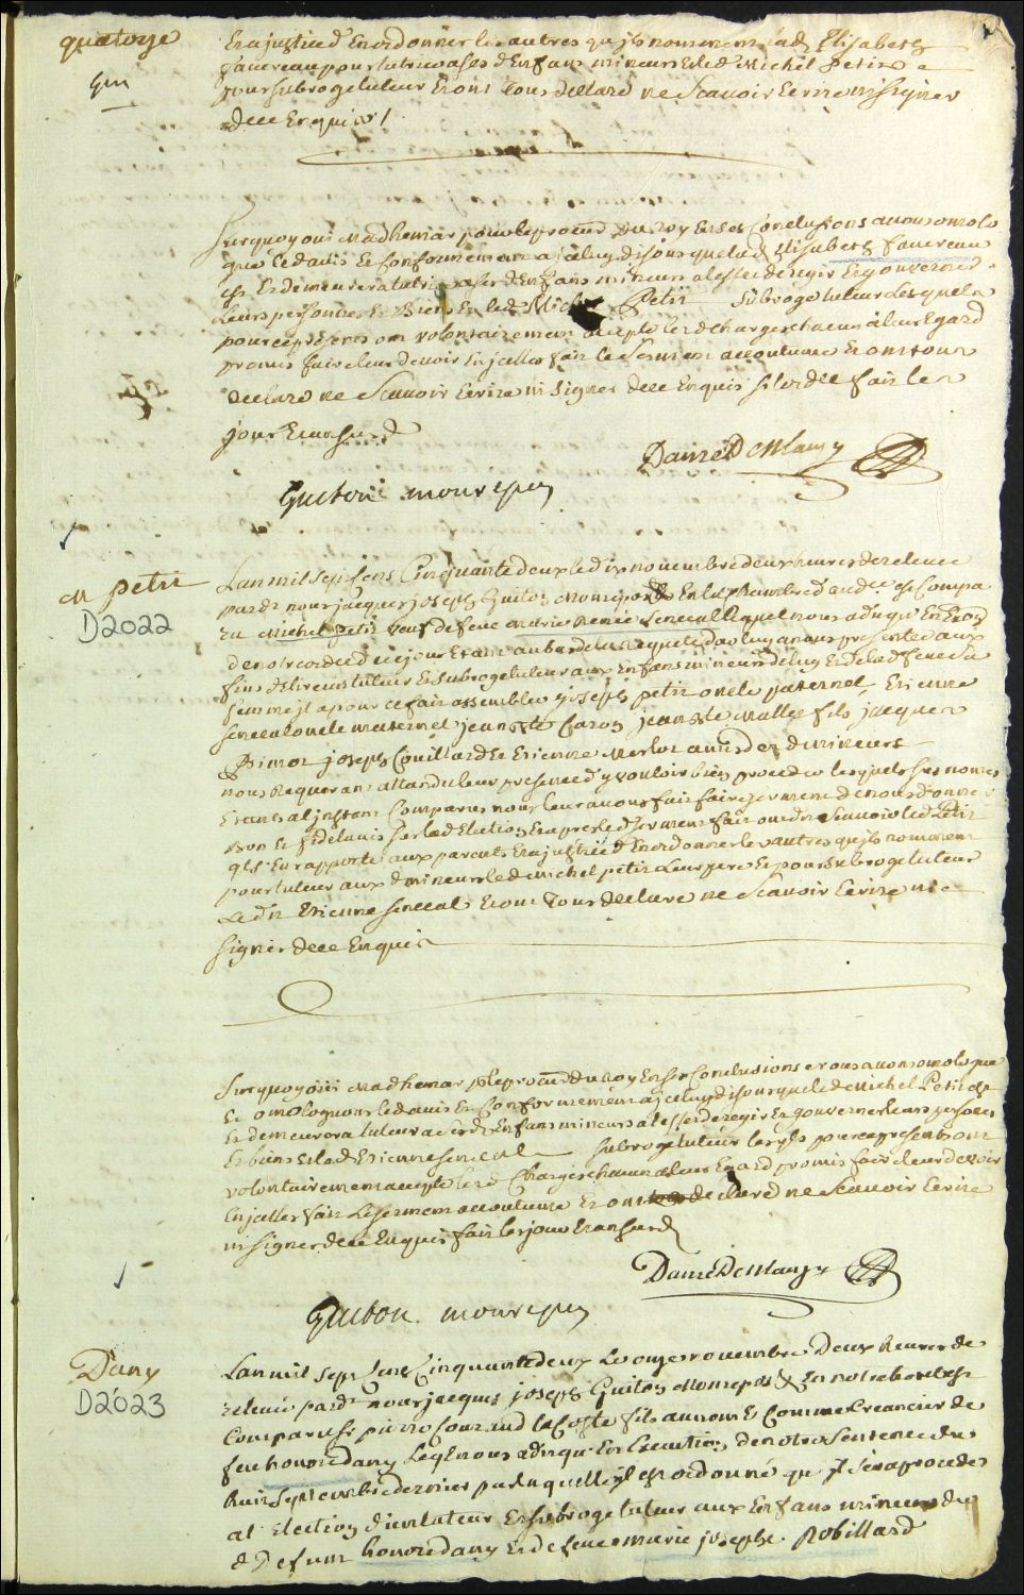 quatorze
Gui
Et a justice d'En ordonner les autres qu'ils nomment lad. Elisabeth
favereau pour tutrice a ses d. Enfans mineurs Et led. Michel Petit
pour subrogé tuteur Et ont Tous declaré ne Scavoir Ecrire ni signer
dece Enquis /
Sur quoy oui Madhemar pour le procur. Du Roy En ses Conclusions avons omolo
gué led. avis Et Conformément a iceluy disons que lad. Elisabeth favereau
est Et demeurera tutrice a ses d. Enfans mineurs a l'effet de regir Et gouverner
Leurs personnes Et Biens Et led. Michel Petit Subrogé tuteur Lesquels
pour ce présens ont volontairement accepté lesd. charges chacun a leur Egard
promis faire leur devoir En icelles fait le Serment accoutumé Et ont tous
declaré ne Scavoir Ecrire ni Signer dece Enquis selon dce fait les
jour Et an susd.
Danré De Blanzy
Guiton monrepos
M Petit
D2022
L'an mil sept Cens Cinquante deux le dix novembre deux heures de relevée
pard. nous jacques joseph Guiton Monrepos & En la Chambre d'aud.ce est Compa
ru Michel Petit veuf de feue Marie Renée Senecal Lequel nous a dit qu'En Exon
de notre ord.ce de ce jour Etant au bas de la Requete par luy a nous presentée aux
fins d'Elire un tuteur Et subrogé tuteur aux Enfans mineurs de luy Et de lad. feue sa
femme jl a pour ce fait assembler joseph petit oncle paternel, Etienne
Senecal oncle maternel jean Bte Caron jean Bte Mallge fils jacques
Pinot joseph Couillard Et Etienne Merlot amis des d. mineurs
nous Requerant attandu leur presence d'y vouloir bien proceder lesquels susnomés
Etans a l'instant Comparus nous leur avons fait faire serment de nous donner
bon Et fidel avis sur lad. Election Et apres led. serment fait ont dit Scavoir led. Petit
qu'il s'En rapporte aux parents Et a justice d'En ordonner les autres qu'ils nomment
pour tuteur aux d. mineurs led. michel petit Leur pere Et pour subrogé tuteur
Led. Etienne Senecal Et ont Tous declaré ne Scavoir Ecrire ni
signer dece Enquis
Sur quoy oui Madhemar ple procur. Du Roy En ses Conclusions nous avons omologué
Et omologuons led. avis Et Conformément a iceluy disons que led. Michel Petit est
Et demeurera tuteur a ses d. Enfans mineurs a l'effet de regir Et gouverner leurs personnes
Et biens Et led. Etienne Senecal subrogé tuteur lesqls pour ce presents ont
volontairement accepté lesd. Charges chacun a leur Egard promis faire leur devoir
En icelles fait le serment accoutumé Et ont declaré ne Scavoir Ecrire
ni signer dece Enquis fait les jour Et an susd.
Danré De Blanzy
Guiton monrepos
Dany
D2023
L'an mil sept Cens Cinquante deux Le onze novembre Deux heures de
relevée pard. nous jacques joseph Guiton Monrepos & En notre hotel est
Comparu Sr pierre Courraud la Coste fils au nom Et Comme Creancier de
feu honoré dany Leql nous a dit qu'En Execution de notre Sentence du
huit Septembre dernier par laquelle jl est ordonné qu'jl sera procedé
a l'Election d'un tuteur Et subrogé tuteur aux Enfans mineurs du
d. defunt honoré dany Et de feue marie josephe Robillard